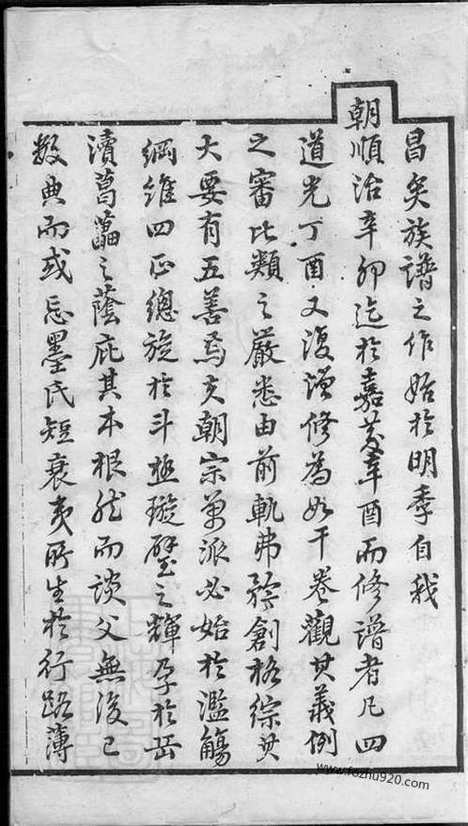 昌矣族譜之作始於明季自我
朝順治辛卯迄於嘉慶辛酉而修譜者凡四
道光丁酉又復增修為如干卷觀其義例
之審比類之嚴悉由前軌弗矜創格綜其
大要有五善焉夫朝宗萬派必始於濫觴
綱維四正總旋於斗極璇璧之輝孕於岳
瀆葛藟之蔭庇其本根然而談父無後已
數典而或忘墨氏短衰夷所生於行路薄
www.fozhu920.com